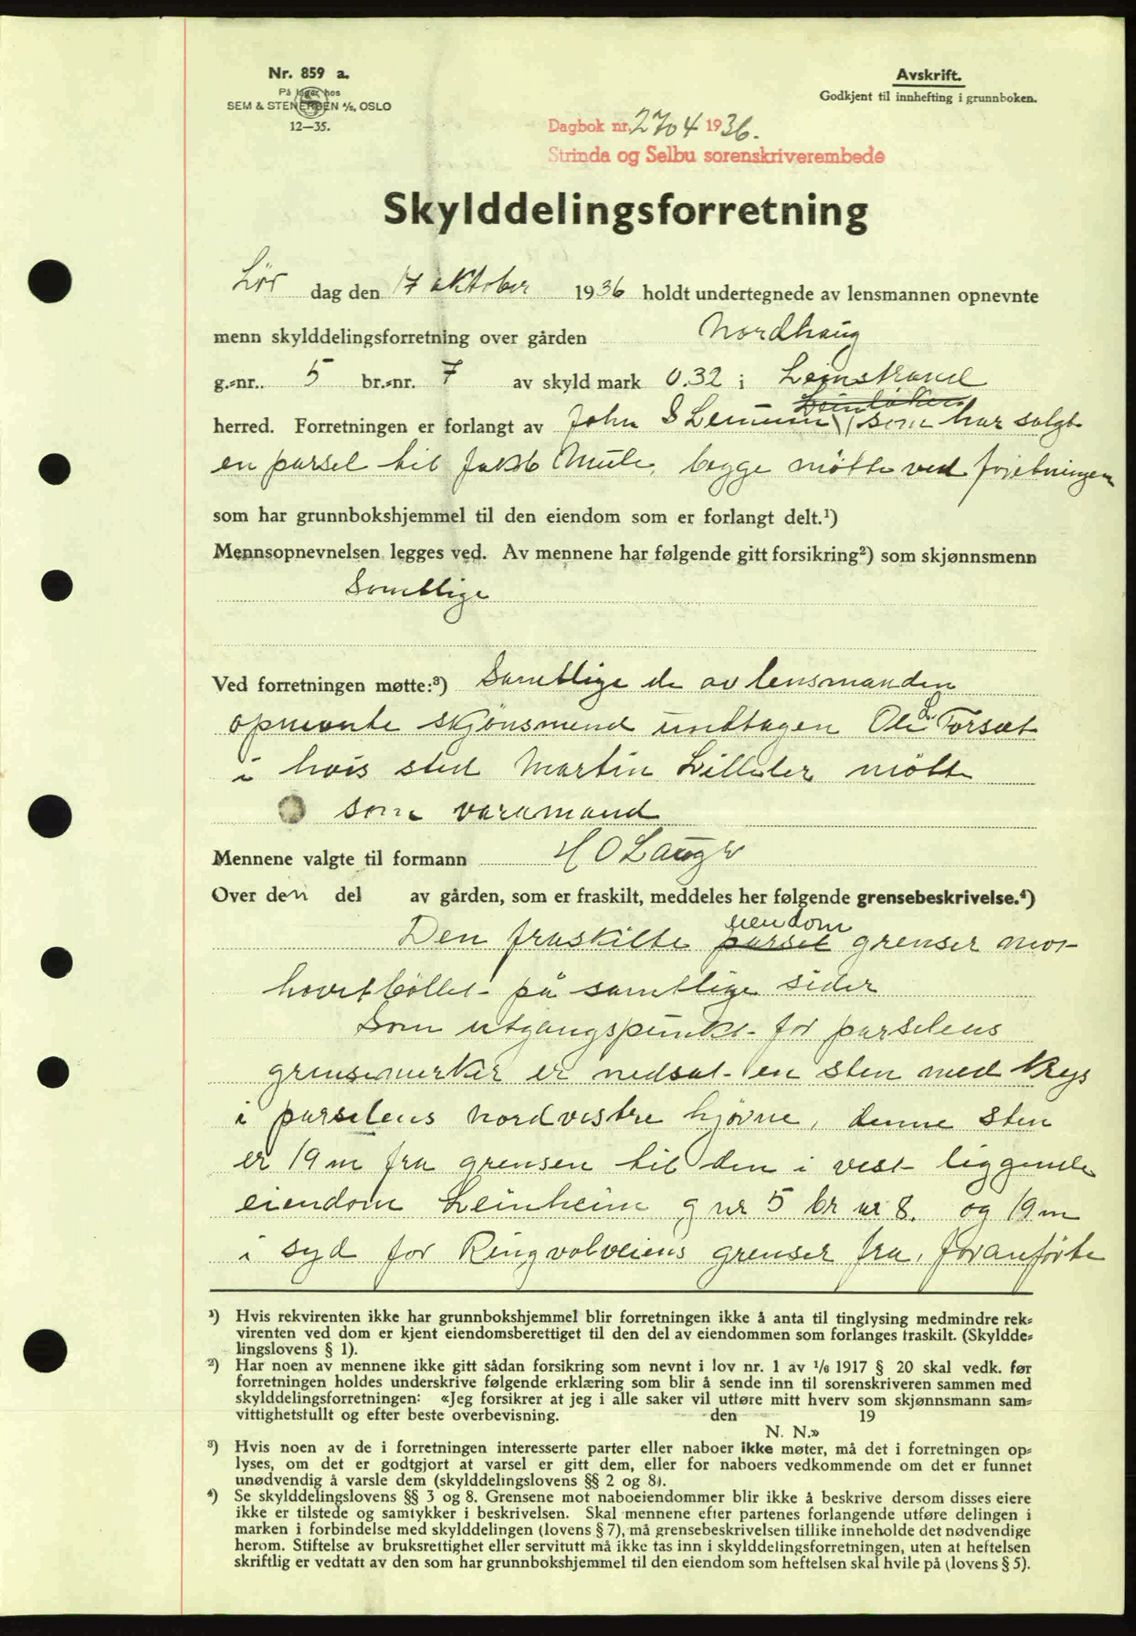 Nr. 859 a.
På lager hos
SEM & STENERSEN A/S, OSLO
12—35.
Avskrift.
Godkjent til innhefting i grunnboken.
Dagbok nr. 2704 1936.
Strinda og Selbu sorenskriverembede
Skylddelingsforretning
Lør dag den 17 oktober 1936 holdt undertegnede av lensmannen opnevnte
menn skylddelingsforretning over gården Nordhaug
g.-nr. 5 br.-nr. 7 av skyld mark 0.32 i Leinstrand
herred. Forretningen er forlangt av John S som har solgt
en parsel til Jakob Mule, begge møtte ved forretningen
som har grunnbokshjemmel til den eiendom som er forlangt delt.¹)
Mennsopnevnelsen legges ved. Av mennene har følgende gitt forsikring²) som skjønnsmenn
Samtlige
Ved forretningen møtte:³) Samtlige de av lensmanden
opnevnte skjønsmend undtagen Ole Forset
i hvis sted Martin møtte
som varamand
Mennene valgte til formann H O
Over den del av gården, som er fraskilt, meddeles her følgende grensebeskrivelse.⁴)
eiendom
Den fraskilte parsel grenser mot
hovetbøllet på samtlige sider
Som utgangspunkt for parselens
grensemerker er nedsat en sten med krys
i parselens nordvestre hjørne, denne sten
er 19 m fra grensen til den i vest liggende
eiendom Leinheim g nr 5 br nr 8. og 19 m
i syd for Ringvolveiens grenser fra, foranførte
¹) Hvis rekvirenten ikke har grunnbokshjemmel blir forretningen ikke å anta til tinglysing medmindre rek-
virenten ved dom er kjent eiendomsberettiget til den del av eiendommen som forlanges fraskilt. (Skyldde-
lingslovens § 1).
²) Har noen av mennene ikke gitt sådan forsikring som nevnt i lov nr. 1 av 1/6 1917 § 20 skal vedk. før
forretningen holdes underskrive følgende erklæring som blir å sende inn til sorenskriveren sammen med
skylddelingsforretningen: «Jeg forsikrer at jeg i alle saker vil utføre mitt hverv som skjønnsmann sam-
vittighetsfullt og efter beste overbevisning. den 19
N. N.»
³) Hvis noen av de i forretningen interesserte parter eller naboer ikke møter, må det i forretningen op-
lyses, om det er godtgjort at varsel er gitt dem, eller for naboers vedkommende om det er funnet
unødvendig å varsle dem (skylddelingslovens §§ 2 og 8).
⁴) Se skylddelingslovens §§ 3 og 8. Grensene mot naboeiendommer blir ikke å beskrive dersom disses eiere
ikke er tilstede og samtykker i beskrivelsen. Skal mennene efter partenes forlangende utføre delingen i
marken i forbindelse med skylddelingen (lovens § 7), må grensebeskrivelsen tillike inneholde det nødvendige
herom. Stiftelse av bruksrettighet eller servitutt må ikke tas inn i skylddelingsforretningen, uten at heftelsen
skriftlig er vedtatt av den som har grunnbokshjemmel til den eiendom som heftelsen skal hvile på (lovens § 5).